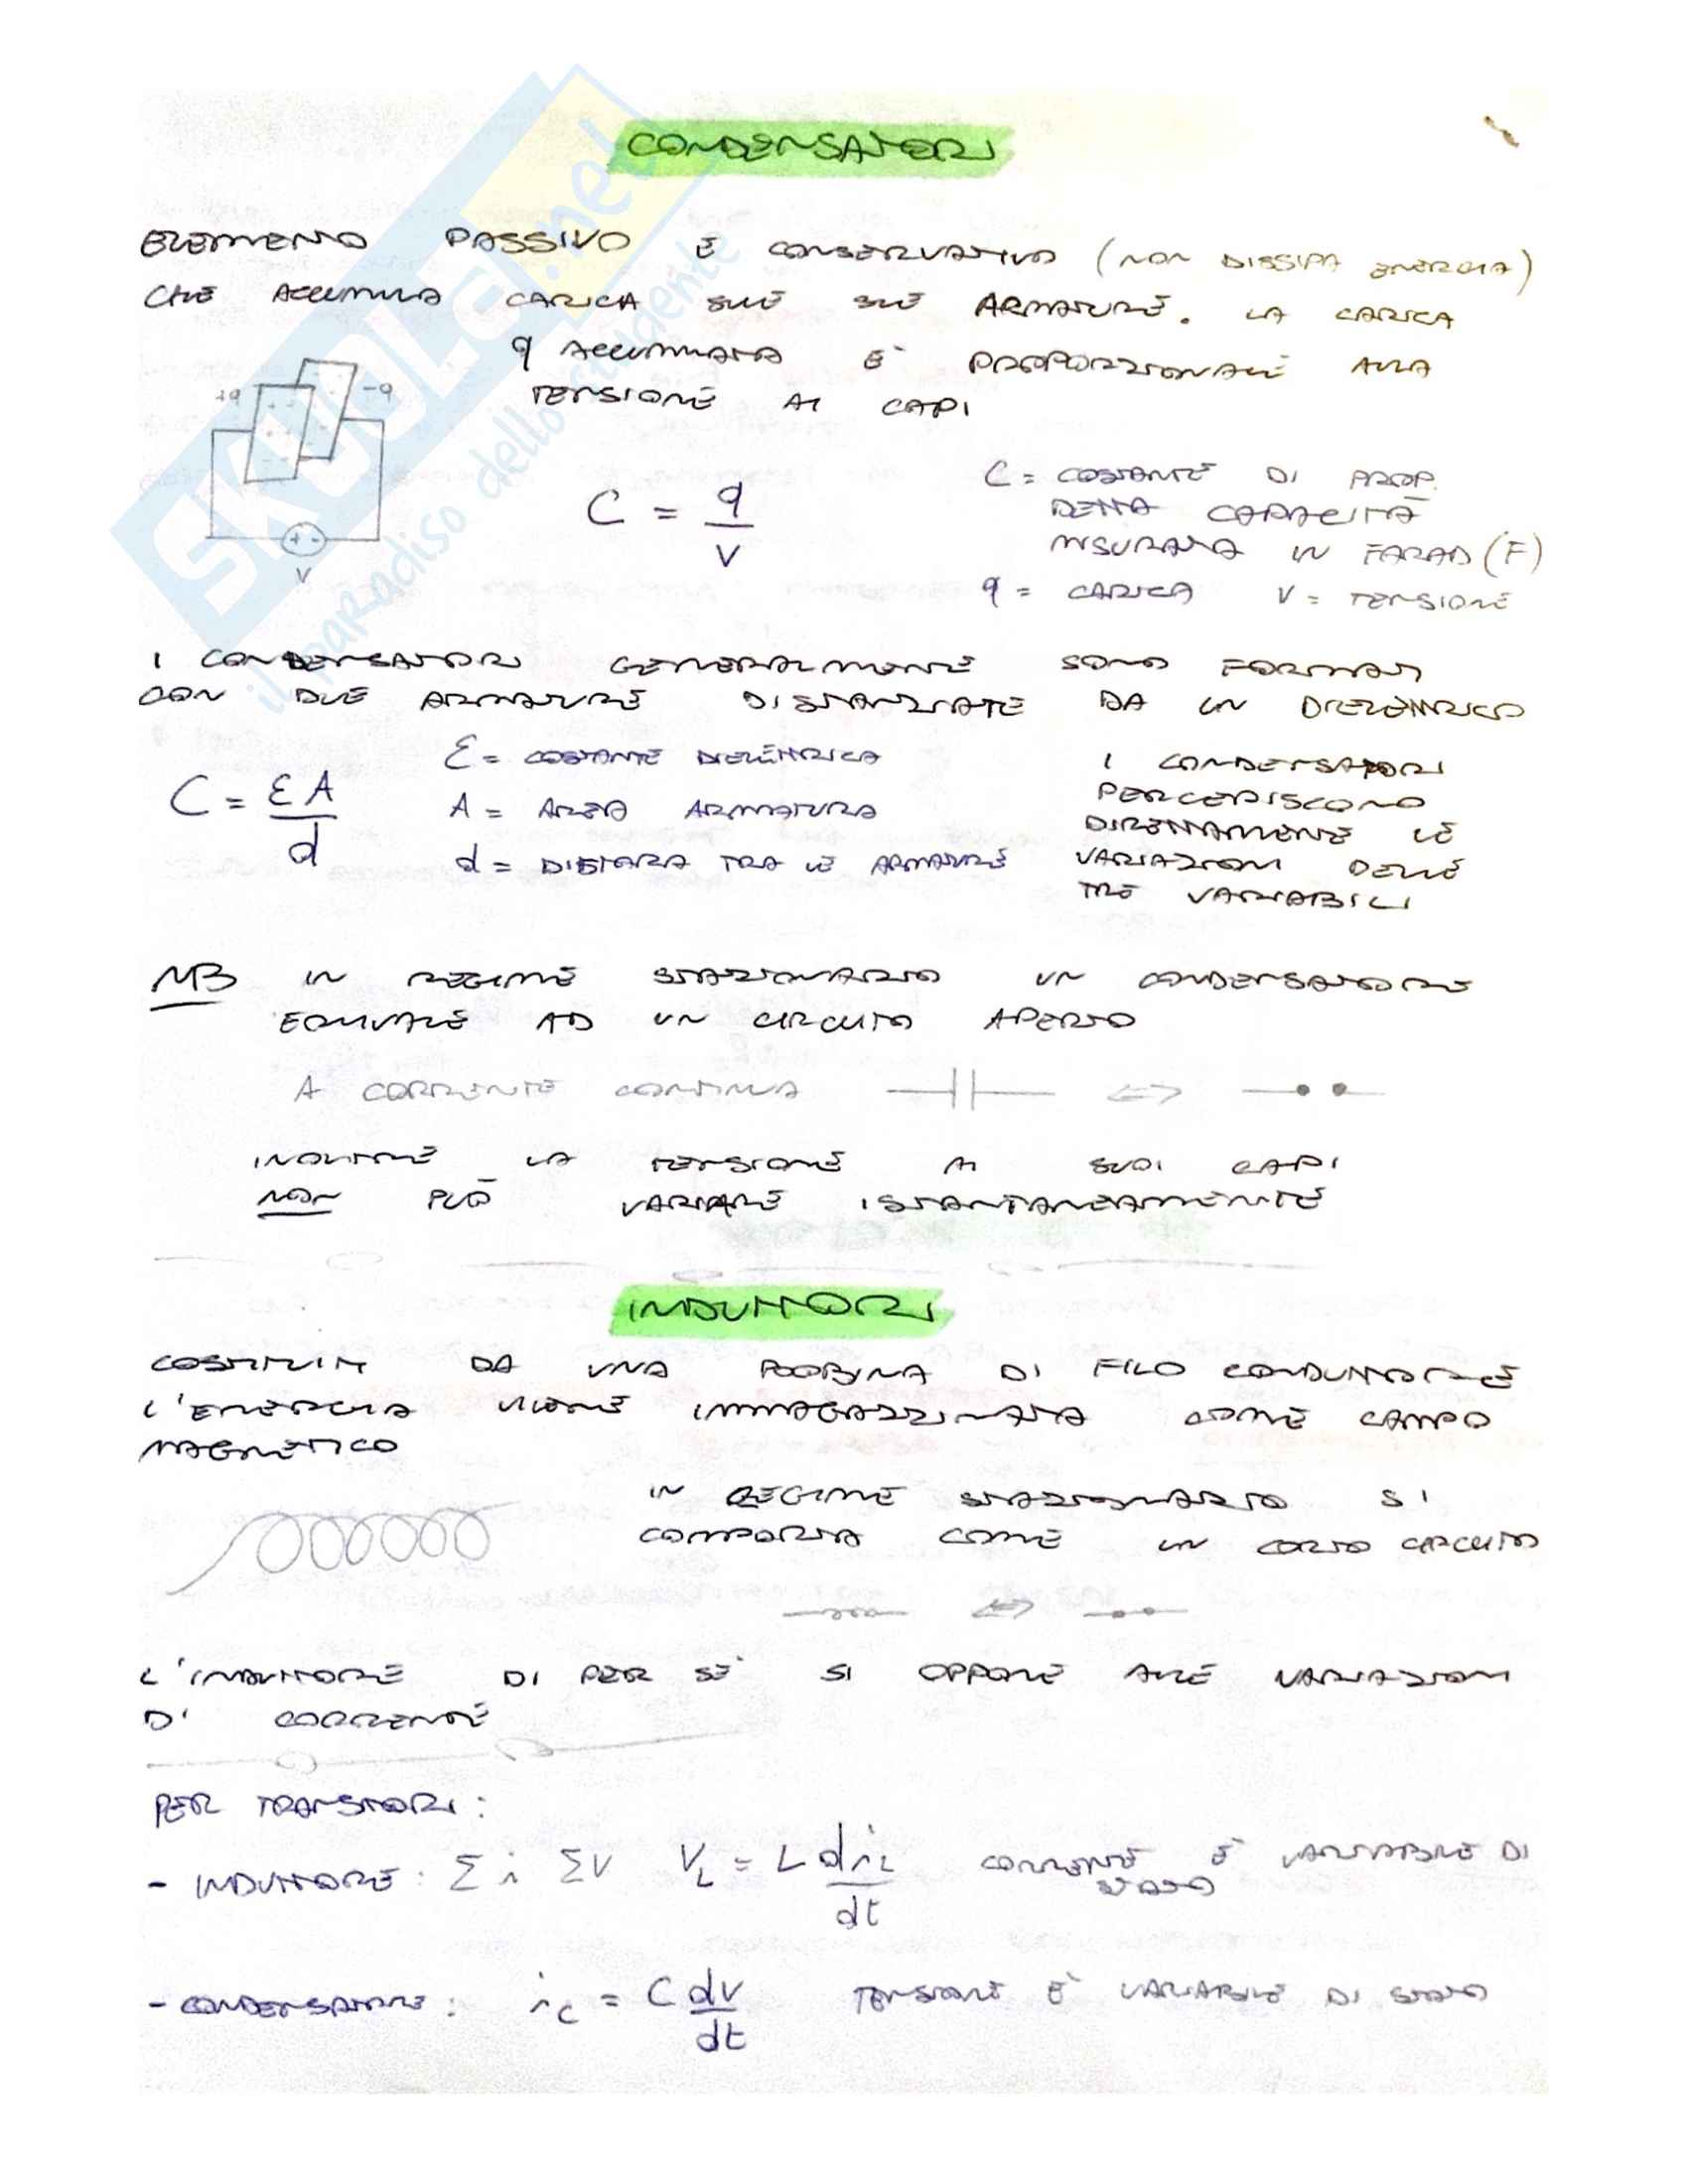 CONDENSATORI
ELEMENTO PASSIVO E CONSERVATIVO (NON DISSIPA ENERGIA)
CHE ACCUMULA CARICA SULLE SUE ARMATURE. LA CARICA
q ACCUMULATA E' PROPORZIONALE ALLA
TENSIONE AI CAPI
+q -q
+ -
V
C = q/v
C = COSTANTE DI PROP.
DETTA CAPACITÀ
MISURATA IN FARAD (F)
q = CARICA V = TENSIONE
I CONDENSATORI GENERALMENTE SONO FORMATI
CON DUE ARMATURE DISTANZIATE DA UN DIELETTRICO
C = εA/d
ε = COSTANTE DIELETTRICA
A = AREA ARMATURA
d = DISTANZA TRA LE ARMATURE
I CONDENSATORI
PERCEPISCONO
DIRETTAMENTE LE
VARIAZIONI DELLE
TRE VARIABILI
NB IN REGIME STAZIONARIO UN CONDENSATORE
EQUIVALE AD UN CIRCUITO APERTO
A CORRENTE CONTINUA <=>
INOLTRE LA TENSIONE AI SUOI CAPI
NON PUÒ VARIARE ISTANTANEAMENTE
INDUTTORI
COSTITUITI DA UNA BOBINA DI FILO CONDUTTORE
L'ENERGIA VIENE IMMAGAZZINATA COME CAMPO
MAGNETICO
IN REGIME STAZIONARIO SI
COMPORTA COME UN CORTO CIRCUITO
<=>
L'INDUTTORE DI PER SE' SI OPPONE ALLE VARIAZIONI
DI CORRENTE
PER TRANSITORI:
- INDUTTORE: Σi ΣV V_L = L di_L/dt CORRENTE E' VARIABILE DI
STATO
- CONDENSATORE: i_C = C dv/dt TENSIONE E' VARIABILE DI STATO
SKUOLA.net
il paradiso dello studente